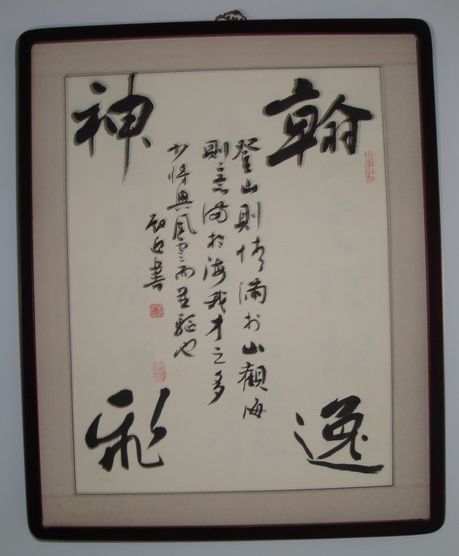 翰逸
登山則情滿於山觀海
則意滿於海我才之多
少將與風雲而並驅也
書
神飛